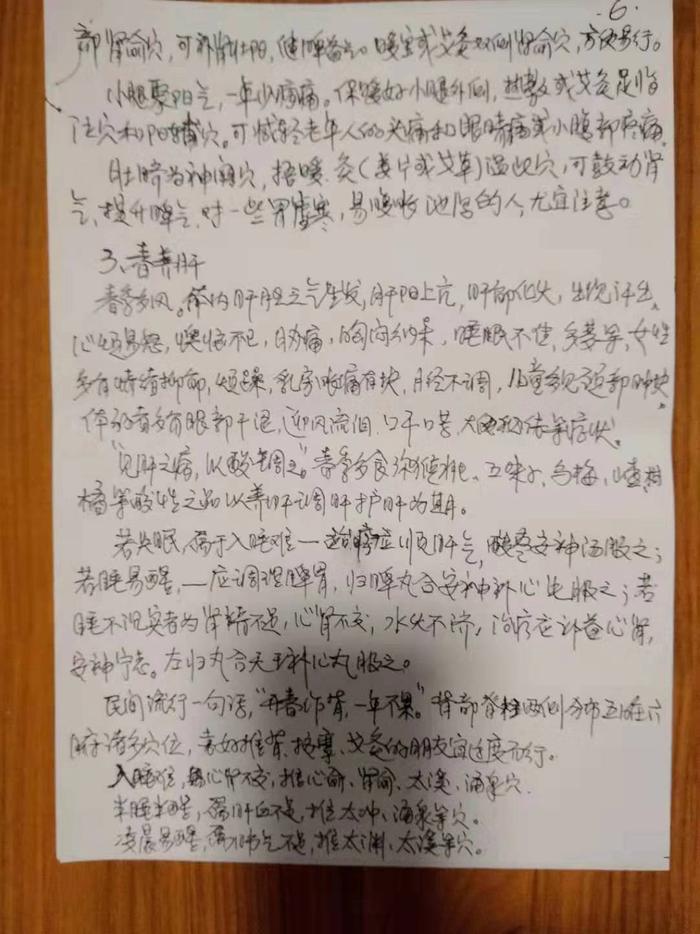 .6.
部肾俞穴,可补肾壮阳,健脾益气。暖宝或艾灸双侧肾俞穴,方便易行。
小腿聚阳气,一年少疼痛。保暖好小腿外侧,热敷或艾灸足临
泣穴和阳辅穴。可减轻老年人的头痛和眼睛痛或小腹部疼痛。
肚脐为神阙穴,捂暖、灸(姜片或艾草)温此穴,可鼓动肾
气,提升脾气,对一些胃虚寒,易腹胀泄泻的人,尤宜注意。
3、春养肝
春季多风。体内肝胆之气生发,肝阳上亢,肝郁化火,出现汗出,
心烦易怒,懊恼不已,胁痛,胸闷纳呆,睡眠不佳,多梦等,女性
多有情绪抑郁,烦躁,乳房胀痛有块,月经不调,儿童多见颈部肿块,
体弱者多有眼部干涩,迎风流泪、口干口苦、大便秘结等症状。
“见肝之病,以酸先调之”。春季多食猕猴桃、五味子、乌梅、山楂、柑
橘等酸性之品以养肝调肝护肝为期。
若失眠,偏于入睡难—适应症顺肝气,酸枣安神汤服之;
若睡易醒,—应调理脾胃,归脾丸合安神补心丸服之;若
睡不沉实者为肾精不足,心肾不交,水火不济,治疗应补益心肾,
安神宁志。左归丸合天王补心丸服之。
民间流行一句话,“开春推背,一年不累。”背部脊柱两侧分布五脏六
腑诸多穴位,喜好推背、按摩、艾灸的朋友宜适度而行。
入睡难,属心肾不交,推心俞、肾俞、太溪、涌泉穴.
半睡半醒,属肝血不足,推太冲、涌泉等穴。
凌晨易醒,属肺气不足,推太渊、太溪等穴。